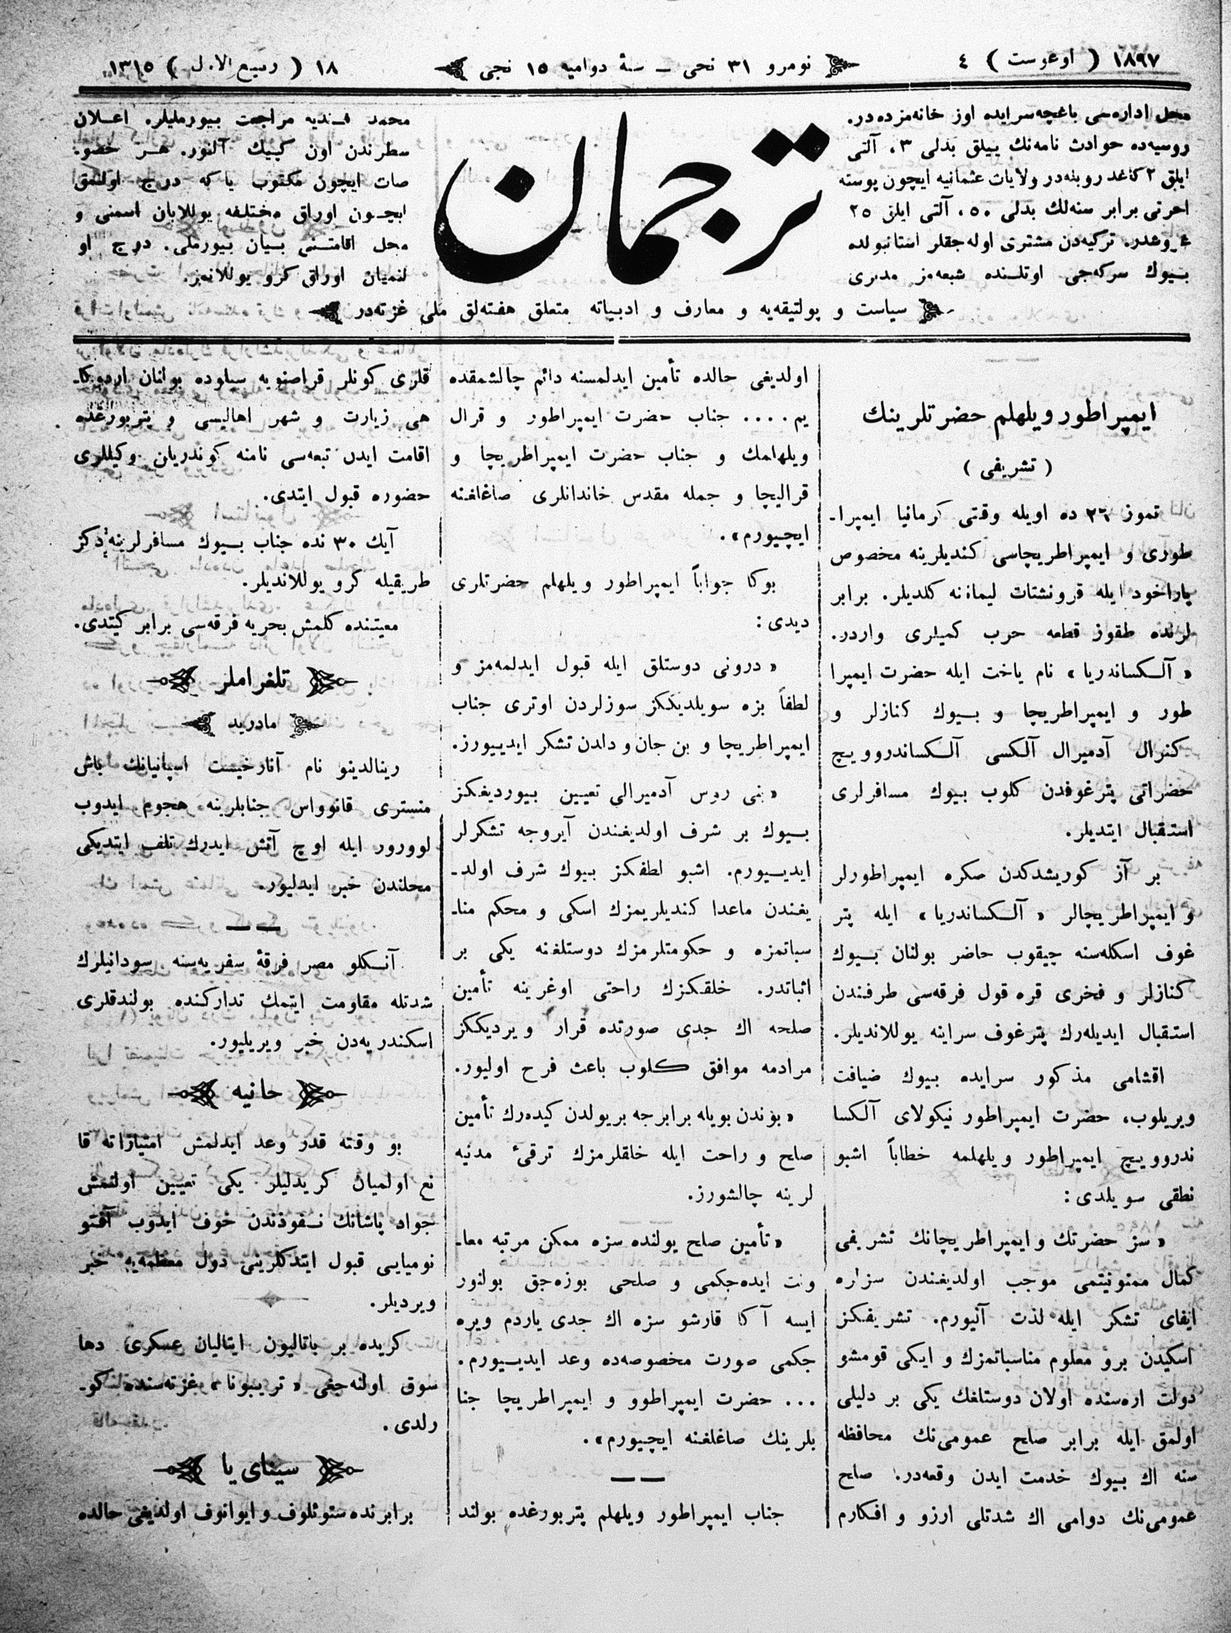 ١٨٩٧ ( اوغوست ) ٤
نومرو ٣١ نجى ــ سنهٔ دواميه ١٥ نجى
١٨ ( ربيع الاول ) ١٣١٥
محل اداره‌سى باغچه‌سرايده اوز خانه‌مزده‌در.
روسيه‌ده حوادث نامه‌نك ييللق بدلى ٣، آلتى
ايلق ٢ كاغد روبله‌در ولايات عثمانيه ايچون پوسته
اجرتى برابر سنه‌لك بدلى ٥٠، آلتى ايلق ٢٥
غروشدر. تركيه‌دن مشترى اوله‌جقلر استانبولده
بيوك سركه‌جى اوتلنده شعبه‌مز مديرى
ترجمان
محمد افنديه مراجعت بيورمليلر. اعلان
سطرندن اون كپيك آلنور. هر خصو.
صات ايچون مكتوب ياكه درج اولنمق
ايچون اوراق مختلفه يوللايان اسمنى و
محل اقامتنى بيان بيورملى. درج او
لنميان اوراق كرو يوللانمز.
سياست و پولتيقه‌يه و معارف و ادبياته متعلق هفته‌لق ملى غزته‌در
ايمپراطور ويلهلم حضرتلرينك
( تشريفى )
تموز ٢٦ ده اويله وقتى كرمانيا ايمپرا-
طورى و ايمپراطريچاسى كنديلرينه مخصوص
پاراخود ايله قرونشتات ليماننه كلديلر. برابر
لرنده طقوز قطعه حرب كميلرى واردر.
« آلكساندريا » نام ياخت ايله حضرت ايمپرا
طور و ايمپراطريچا و بيوك كنازلر و
كنرال آدميرال آلكسى آلكساندروويچ
حضراتى پترغوفدن كلوب بيوك مسافرلرى
استقبال ايتديلر.
بر آز كوريشدكدن صكره ايمپراطورلر
و ايمپراطريچالر « آلكساندريا » ايله پتر
غوف اسكله‌سنه چيقوب حاضر بولنان بيوك
كنازلر و فخرى قره قول فرقه‌سى طرفندن
استقبال ايديله‌رك پترغوف سراينه يوللانديلر.
اقشامى مذكور سرايده بيوك ضيافت
ويريلوب، حضرت ايمپراطور نيكولاى آلكسا
ندروويچ ايمپراطور ويلهلمه خطاباً اشبو
نطقى سويلدى :
« سز حضرتك و ايمپراطريچانك تشريفى
كمال ممنونيتمى موجب اولديغندن سزلره
ايفاى تشكر ايله لذت آليورم. تشريفكز
اسكيدن برو معلوم مناسباتمزك و ايكى قومشو
دولت اره‌سنده اولان دوستلغك يكى بر دليلى
اولمق ايله برابر صلح عمومى‌نك محافظه
سنه اك بيوك خدمت ايدن وقعه‌در. صلح
عمومى‌نك دوامى اك شدتلى ارزو و افكارم
اولديغى حالده تأمين ايدلمسنه دائم چالشمقده
يم.... جناب حضرت ايمپراطور و قرال
ويلهلمك و جناب حضرت ايمپراطريچا و
قراليچا و جمله مقدس خاندانلرى صاغلغنه
ايچيورم ».
بوكا جواباً ايمپراطور ويلهلم حضرتلرى
ديدى :
« درونى دوستلق ايله قبول ايدلمه‌مز و
لطفاً بزه سويلديككز سوزلردن اوترى جناب
ايمپراطريچا و بن جان و دلدن تشكر ايدييورز.
« بنى روس آدميرالى تعيين بيورديغكز
بيوك بر شرف اولديغندن آيروجه تشكرلر
ايدييورم. اشبو لطفكز بيوك شرف اولد-
يغندن ماعدا كنديلريمزك اسكى و محكم منا-
سباتمزه و حكومتلرمزك دوستلغنه يكى بر
اثباتدر. خلقكزك راحتى اوغرينه تأمين
صلحه اك جدى صورتده قرار ويرديككز
مرادمه موافق كلوب باعث فرح اوليور.
« بوندن بويله برابرجه بر يولدن كيده‌رك تأمين
صلح و راحت ايله خلقلرمزك ترقىٔ مدنيه
لرينه چالشورز.
« تأمين صلح يولنده سزه ممكن مرتبه معا-
ونت ايده‌جكمى و صلحى بوزه‌جق بولنور
ايسه آكا قارشو سزه اك جدى ياردم ويره
جكمى صورت مخصوصه‌ده وعد ايدييورم.
... حضرت ايمپراطوو و ايمپراطريچا جنا
بلرينك صاغلغنه ايچيورم ».
جناب ايمپراطور ويلهلم پتربورغده بولند
قلرى كونلر قراصنويه سيلوده بولنان اردوكا-
هى زيارت و شهر اهاليسى و پتربورغده
اقامت ايدن تبعه‌سى نامنه كوندريان وكيللرى
حضوره قبول ايتدى.
آيك ٣٠ نده جناب بيوك مسافرلرينه دكز
طريقيله كرو يوللانديلر.
معيتنده كلمش بحريه فرقه‌سى برابر كيتدى.
تلغراملر
مادريد
رينالدينو نام آنارخيست اسپانيانك باش
منسترى قانوواس جنابلرينه هجوم ايدوب
لوورور ايله اوچ آتش ايدرك تلف ايتديكى
محلندن خبر ايدليور.
آنكلو مصر فرقهٔ سفريه‌سنه سودانيلرك
شدتله مقاومت ايتمك تداركنده بولندقلرى
اسكندريه‌دن خبر ويريليور.
حانيه
بو وقته قدر وعد ايدلمش امتيازاته قا
نع اولميان كريدليلر يكى تعيين اولنمش
جواد پاشانك نفوذندن خوف ايدوب آفتو
نوميايى قبول ايتدكلرينى دول معظمه‌يه خبر
ويرديلر.
كريده بر باتاليون ايتاليان عسكرى دها
سوق اولنه‌جغى « تريبونا » غزته‌سنده كو-
رلدى.
سيناى يا
برابرنده ستوئلوف و ايوانوف اولديغى حالده